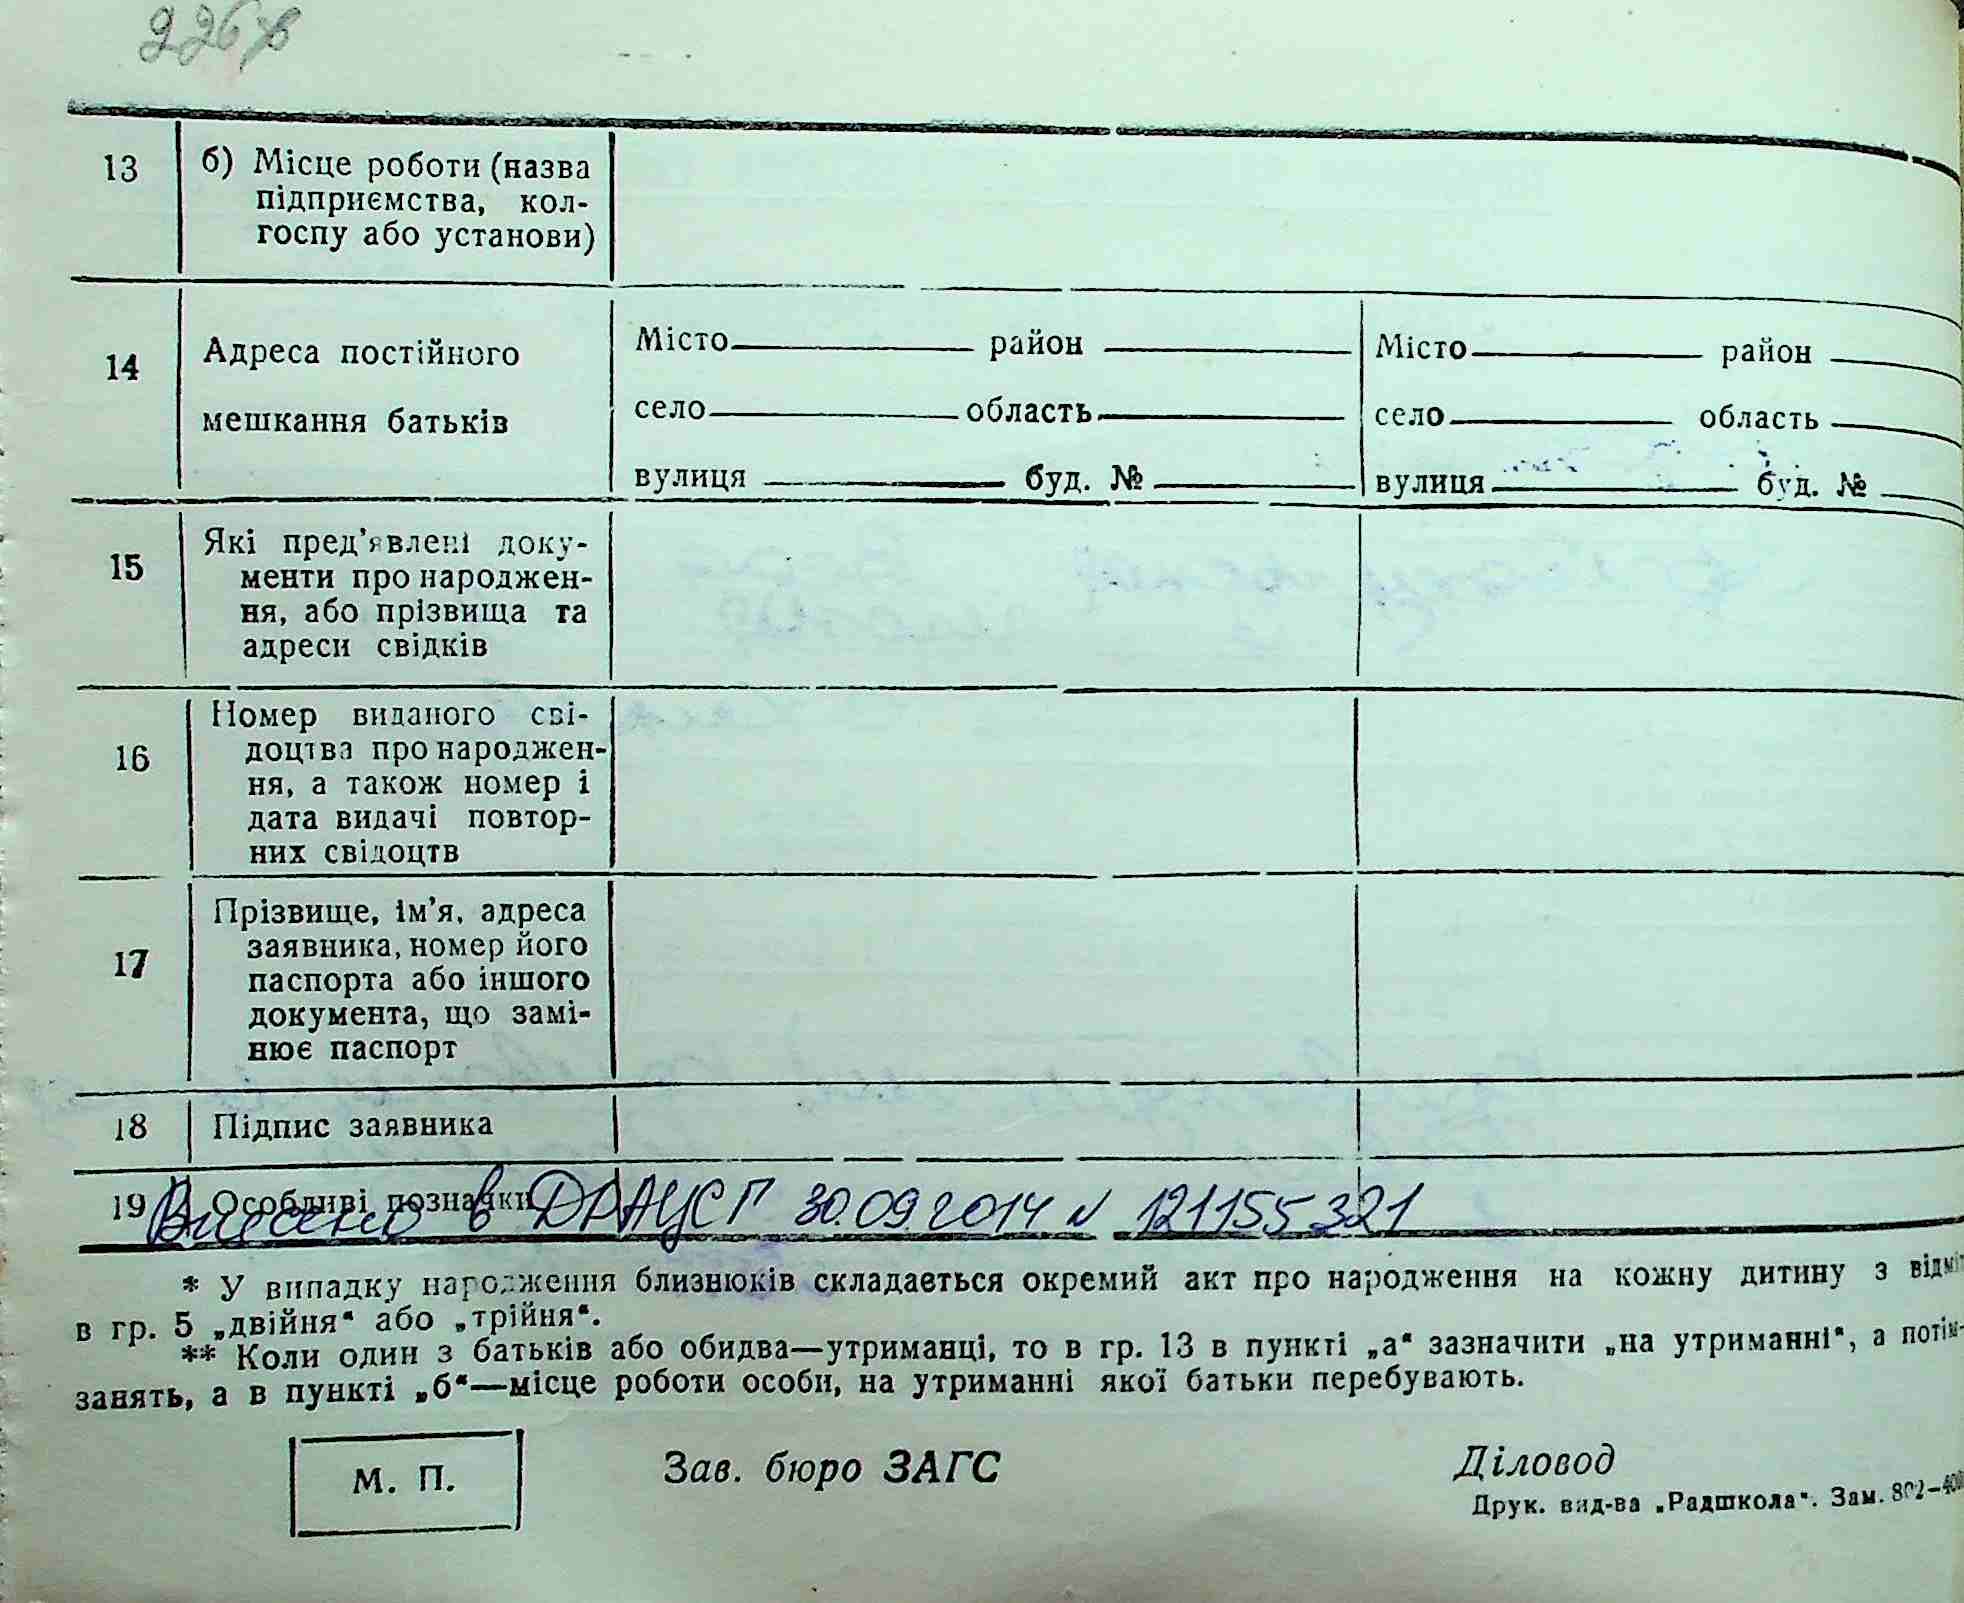 226
13 б) Місце роботи (назва
підприємства, кол-
госпу або установи)
14 Адреса постійного
мешкання батьків
Місто район Місто район
село область село область
вулиця буд. № вулиця буд. №
15 Які пред’явлені доку-
менти про народжен-
ня, або прізвища та
адреси свідків
16 Номер виданого сві-
доцтва про народжен-
ня, а також номер і
дата видачі повтор-
них свідоцтв
17 Прізвище, ім’я, адреса
заявника, номер його
паспорта або іншого
документа, що замі-
нює паспорт
18 Підпис заявника
19 Особливі позначки
Внесено в ДРАЦСГ 30.09.2014 № 121155321
* У випадку народження близнюків складається окремий акт про народження на кожну дитину з відміт
в гр. 5 „двійня“ або „трійня“.
** Коли один з батьків або обидва—утриманці, то в гр. 13 в пункті „а“ зазначити „на утриманні“, а потім-
занять, а в пункті „б“—місце роботи особи, на утриманні якої батьки перебувають.
М. П. Зав. бюро ЗАГС Діловод
Друк. вид-ва „Радшкола“. Зам. 802—400